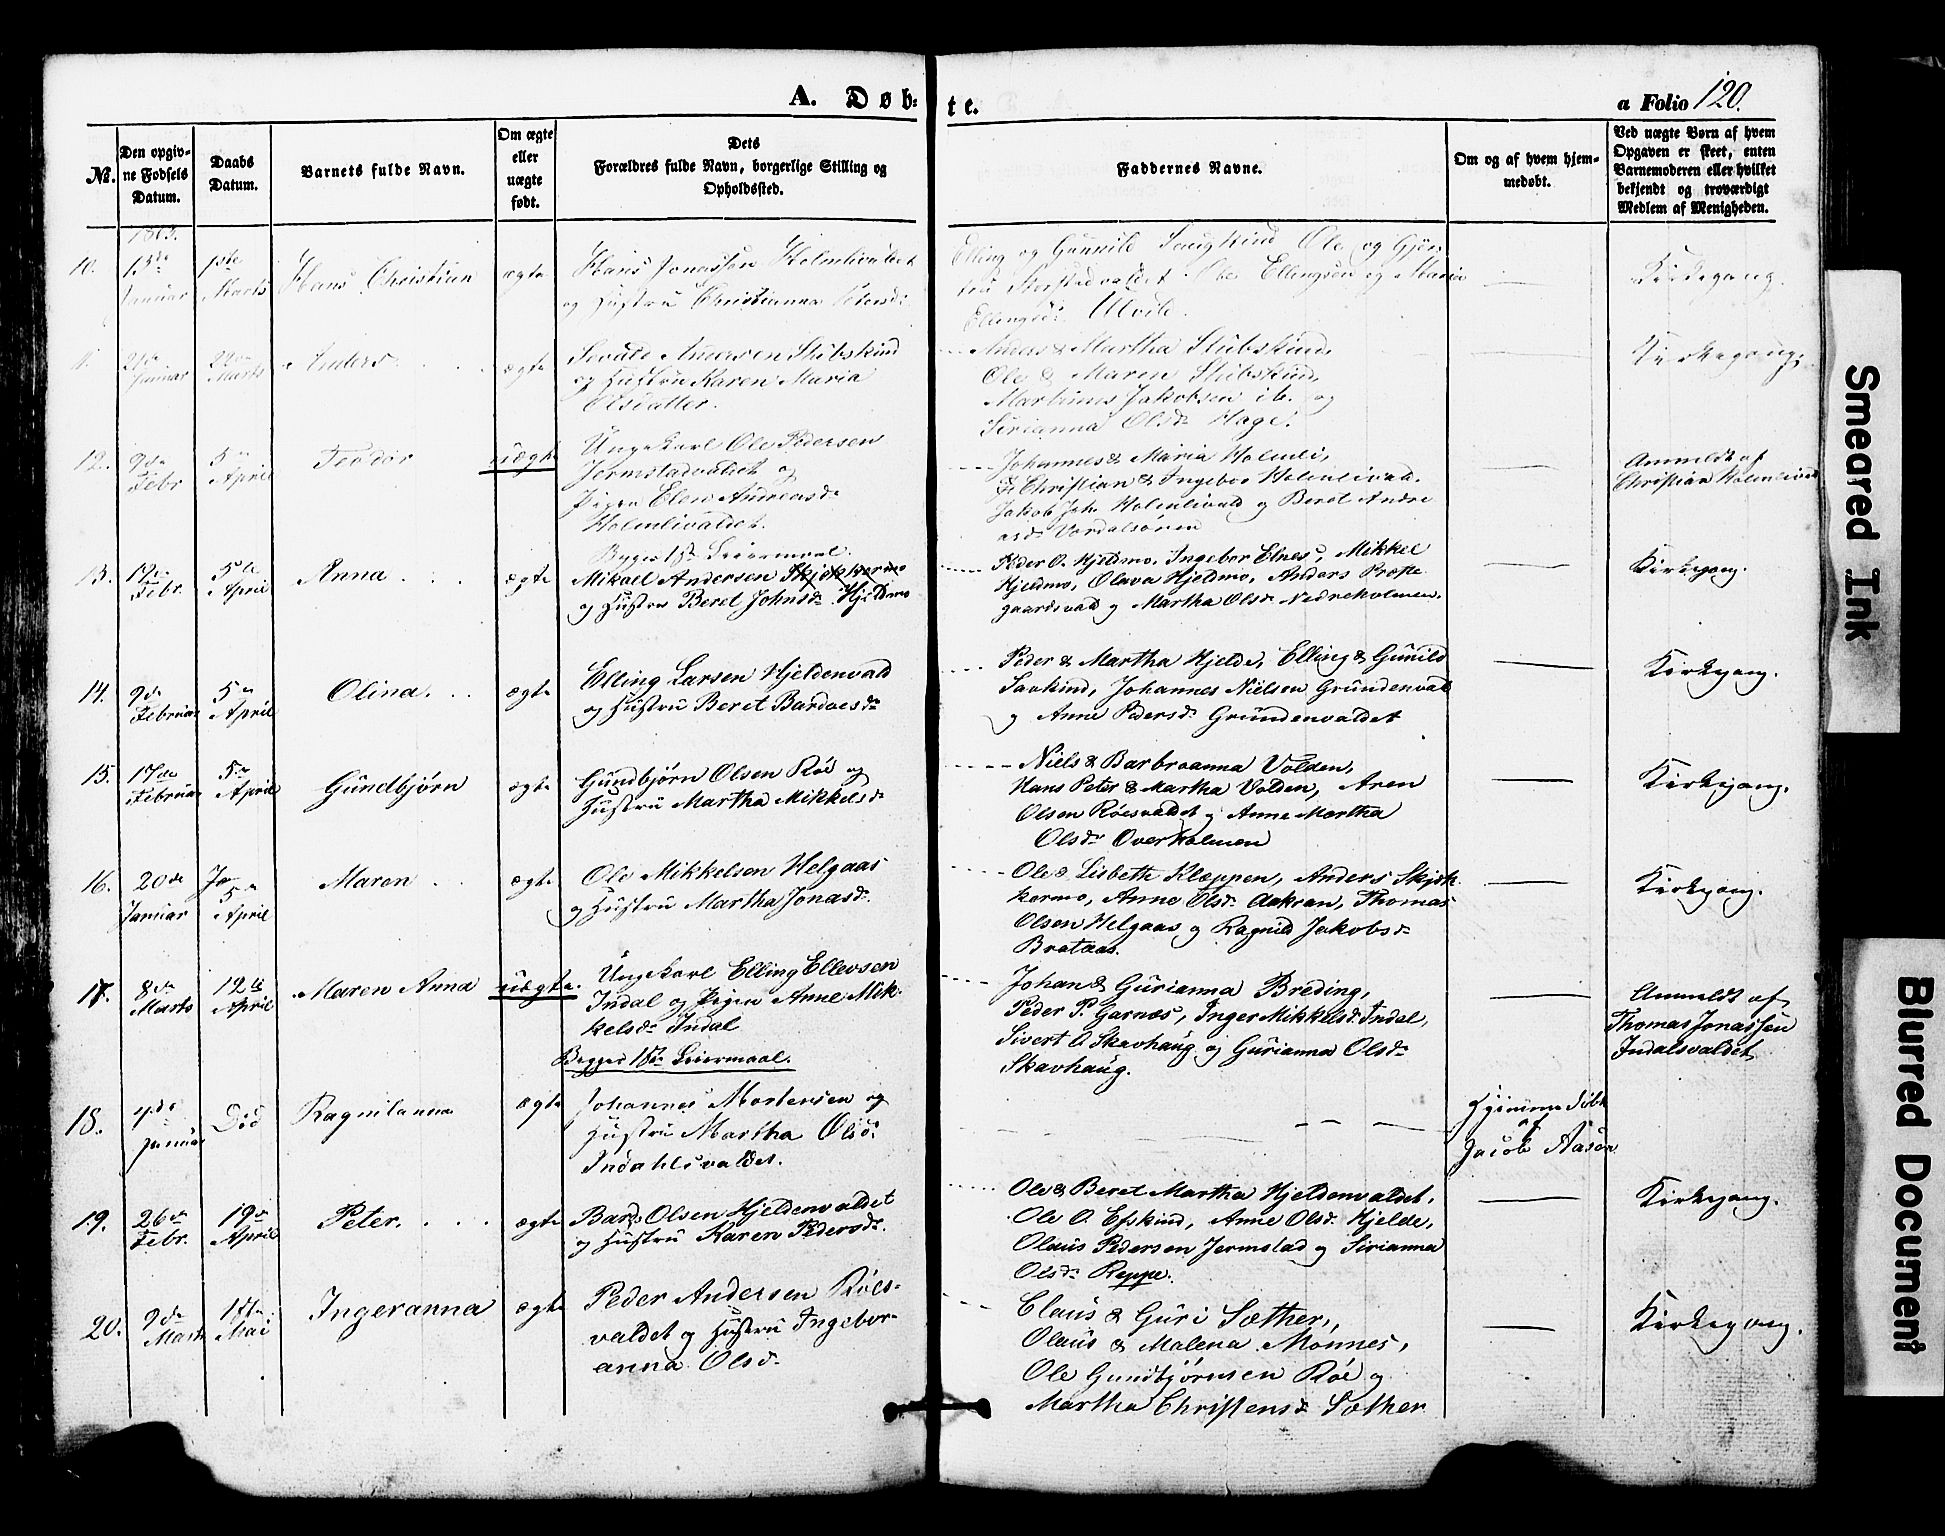 A. Døb-
te.
a Folio 120.
No.
Den opgiv-
ne Fødsels
Datum.
Daabs
Datum.
Barnets fulde Navn.
Om ægte
eller
uægte
født.
Dets
Forældres fulde Navn, borgerlige Stilling og
Opholdssted.
Faddernes Navne.
Om og af hvem hjem-
medøbt.
Ved uægte Børn af hvem
Opgaven er skeet, enten
Barnemoderen eller hvilket
bekjendt og troværdigt
Medlem af Menigheden.
10.
Januar
1ste
Marts
Hans Christian
ægte
Hans Jonassen Holmlivaldet
og Hustru Christianna Petersd:
Elling og Gunnild Saugkind Ole og
Ellingsen og Maria
Ellingsd: Ulvild.
Kirkegang.
11.
Januar
Marts
Anders
ægte
Sevald Andersen Stubskind
og Hustru Karen Maria
Olsdatter.
Anders & Martha Stubskind,
Ole & Maren Stubskind,
Martinus Jakobsen ib. og
Sirianna Olsdr Hage.
Kirkegang.
12.
9de
Febr
5te
April
Teodor
uægte
Ungekarl Ole Pedersen
Jermstadvaldet og
Pigen Elen Andreasdr
Holmlivaldet.
Begges 1ste Leiermaal.
Johannes & Maria Holmli,
Christian & Ingebor Holmlivald.
Jakob Joh. Holmlivald og Beret Andre
asdr Verdalsøren
Anmeldt af
Christian Holmlivald
13.
Febr.
5te
April
Anna
ægte
Mikael Andersen Skjækermo
og Hustru Beret Johnsdr Hjeldmo
Peder O. Hjeldmo, Ingebor Elnes, Mikkel
Hjeldmo, Olava Hjeldmo, Anders Præste
gaardsvald og Martha Olsdr Nedreholmen.
Kirkegang.
14.
9de
Februar
5te
April
Olina.
ægte
Elling Larsen Hjeldenvald
og Hustru Beret Bardoesdr
Peder & Martha Hjelde, Elling & Gunild
Savkind, Johannes Nielsen Grundenvald
og Anne Pedersdr Grundenvaldet
Kirkegang.
15.
17de
Februar
5te
April
Gundbjørn
ægte
Gundbjørn Olsen Röe og
Hustru Martha Mikkelsdr
Niels & Barbroanna Volden,
Hans Peter & Martha Volden, Aren
Olsen Röesvaldet og Anne Martha
Olsdr Overholmen
Kirkegang.
16.
20de
Januar
5te
April
Maren
ægte
Ole Mikkelsen Helgaas
og Hustru Martha Jonasdr.
Ole & Lisbeth Klæppen, Anders Skjæk
kermo, Anne Olsdr Aakran, Thomas
Olsen Helgaas og Ragnild Jakobsdr
Brataas.
Kirkegang.
17.
8de
Marts
12te
April
Maren Anna
uægte.
Ungekarl Elling Ellevsen
Indal og Pigen Anne Mik-
kelsdr Indal
Begges 1ste Leiermaal.
Johan & Gurianna Breding,
Peder P. Garnæs, Inger Mikkelsdr Indal,
Sivert O. Skavhaug og Gurianna Olsdr
Skavhaug.
Anmeldt af
Thomas Jonassen
Indalsvaldet
18.
Januar
Död
Ragnilanna
ægte
Johannes Mortensen og
Hustru Martha Olsdr.
Indahlsvaldet.
Hjemmedöbt
af
Jacob Aasen
19.
26de
Febr.
19de
April
Peter.
ægte
Bard Olsen Hjeldenvaldet
og Hustru Karen Pedersdr.
Ole & Beret Martha Hjeldenvaldet,
Ole O. Efskind, Anne Olsdr Hjelde,
Olaus Pedersen Jermstad og Sirianna
Olsdr Reppe.
Kirkegang.
20.
9de
Marts
17te
Mai
Ingeranna
ægte
Peder Andersen Röes-
valdet og Hustru Ingebor-
anna Olsdr
Claus & Guri Sæther,
Olaus & Malena Monnes,
Ole Gundbjörnsen Röe og
Martha Christensdr Sæther
Kirkegang.
Smeared Ink
Blurred Document